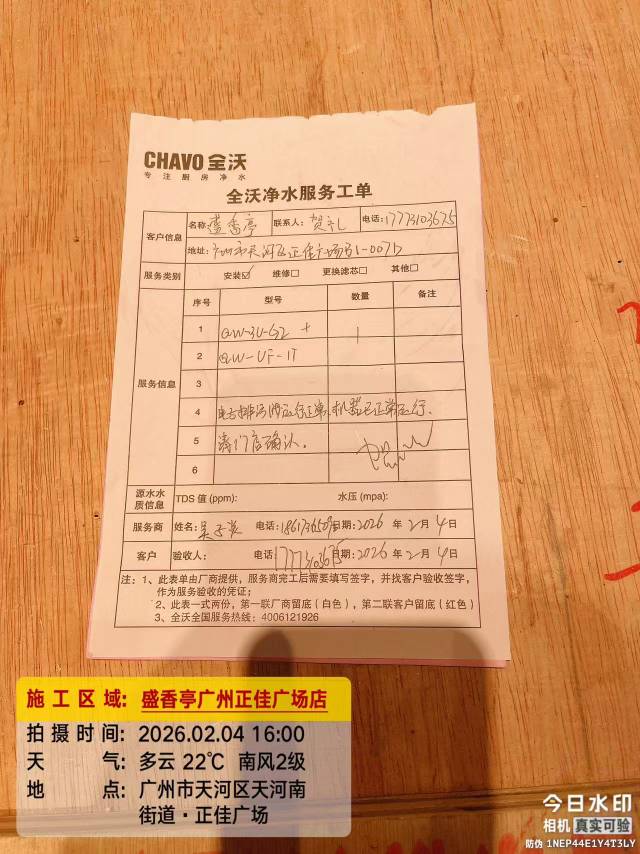 CHAVO 全沃
专注厨房净水
全沃净水服务工单
客户信息 名称: 盛香亭 联系人: 贺礼 电话: 17773103675
地址: 广州市天河区正佳广场
服务类别 安装☑ 维修□ 更换滤芯□ 其他□
服务信息 序号 型号 数量 备注
1 QW-3U-G2 + 1
2 QW-UF-1T
3
4 运行正常,机器已正常运行.
5 请门店确认.
6
源水水质信息 TDS 值 (ppm): 水压 (mpa):
服务商 姓名: 电话: 日期: 2026 年 2 月 4 日
客户 验收人: 电话: 17773103675 日期: 2026 年 2 月 4 日
注: 1、此表单由厂商提供,服务商完工后需要填写签字,并找客户验收签字,
作为服务验收的凭证;
2、此表一式两份,第一联厂商留底(白色),第二联客户留底(红色)
3、全沃全国服务热线: 4006121926
施工区域: 盛香亭广州正佳广场店
拍摄时间: 2026.02.04 16:00
天气: 多云 22℃ 南风2级
地点: 广州市天河区天河南
街道·正佳广场
今日水印
相机 真实可验
防伪 1NEP44E1Y4T3LY